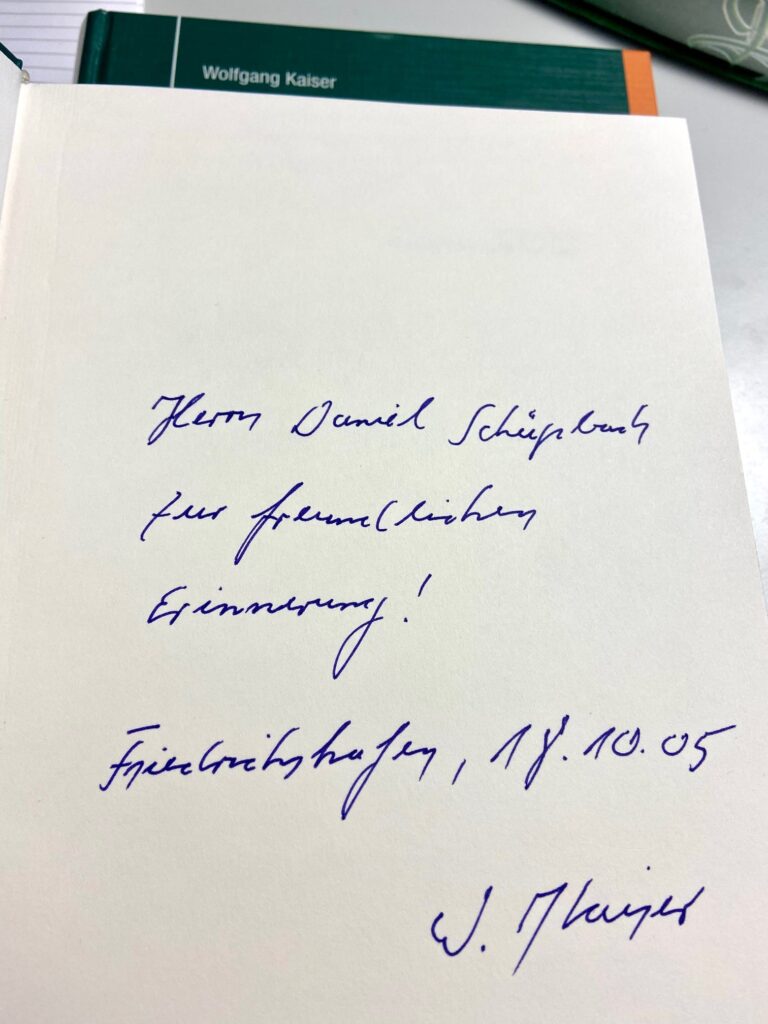 Wolfgang Kaiser
Herrn Daniel Schüpbach
zur freundlichen
Erinnerung!
Friedrichshafen, 18.10.05
W. Kaiser